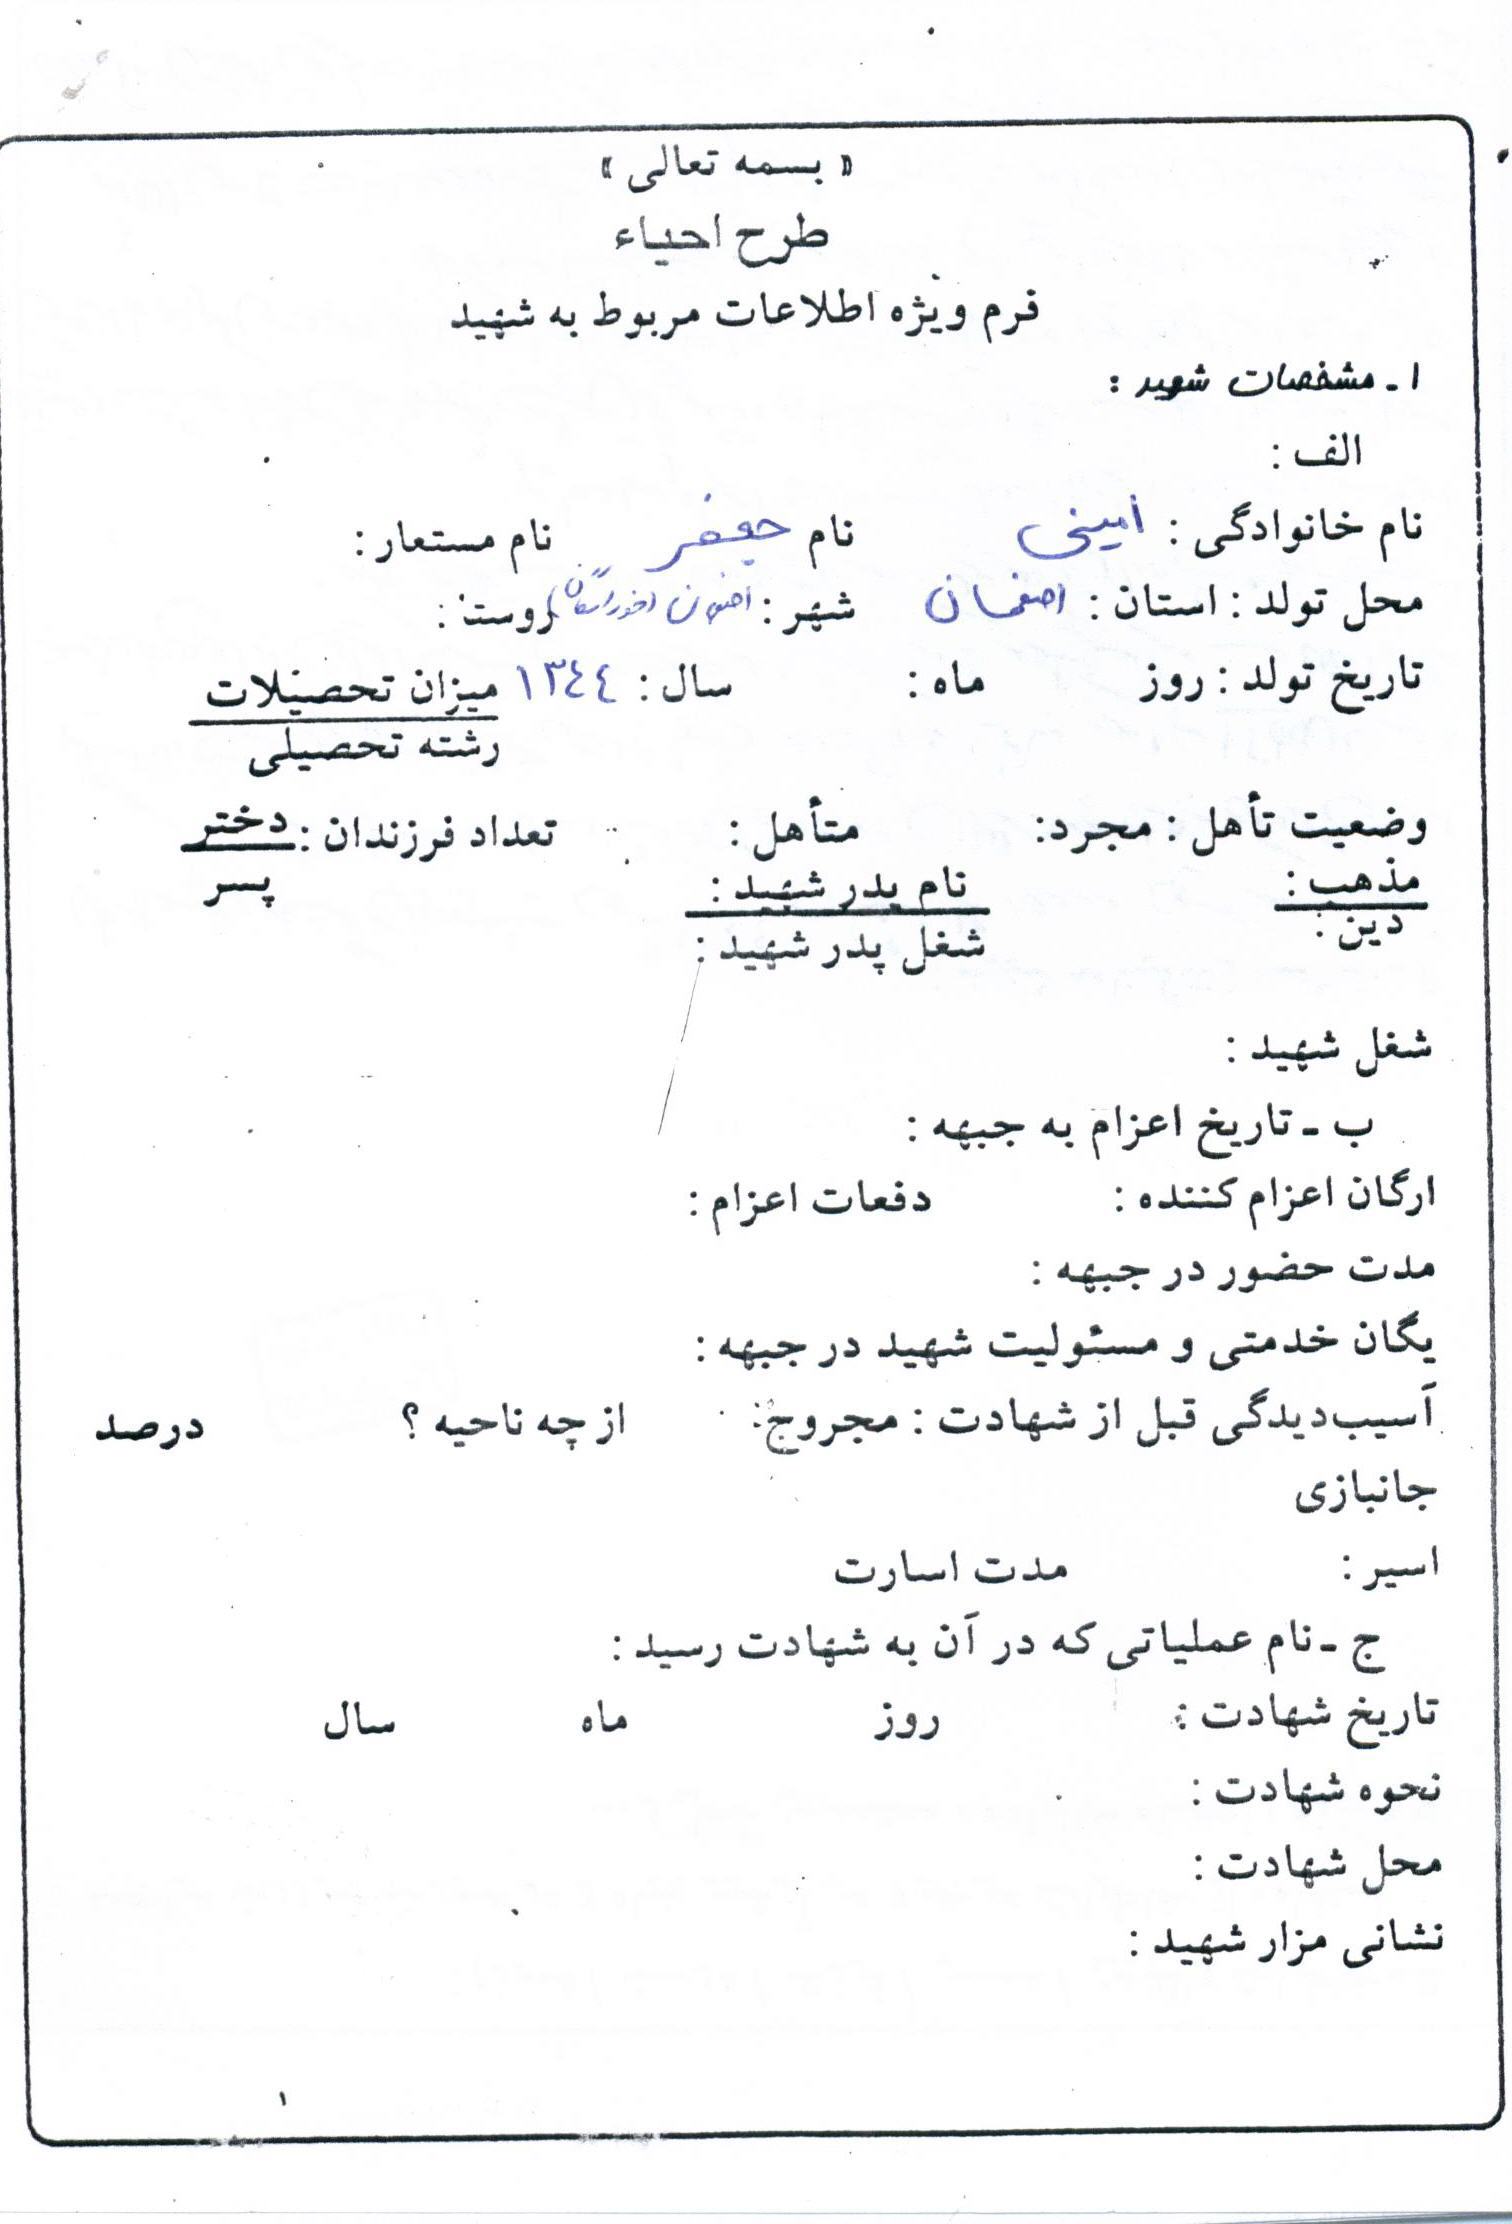 « بسمه تعالی »
طرح احیاء
فرم ویژه اطلاعات مربوط به شهید
۱ ـ مشخصات شهید :
الف :
نام خانوادگی : امینی نام جعفر نام مستعار :
محل تولد : استان : اصفهان شهر : اصفهان (خوراسگان) روستا :
تاریخ تولد : روز ماه : سال : ۱۳۴۴ میزان تحصیلات
رشته تحصیلی
وضعیت تأهل : مجرد: متأهل : تعداد فرزندان : دختر
پسر
مذهب : نام پدر شهید :
دین : شغل پدر شهید :
شغل شهید :
ب ـ تاریخ اعزام به جبهه :
ارگان اعزام کننده : دفعات اعزام :
مدت حضور در جبهه :
یگان خدمتی و مسئولیت شهید در جبهه :
آسیب‌دیدگی قبل از شهادت : مجروح: از چه ناحیه ؟ درصد
جانبازی
اسیر : مدت اسارت
ج ـ نام عملیاتی که در آن به شهادت رسید :
تاریخ شهادت : روز ماه سال
نحوه شهادت :
محل شهادت :
نشانی مزار شهید :
۱